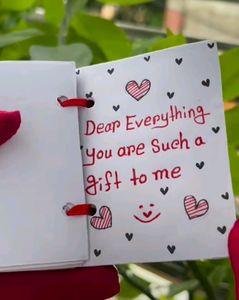 Dear Everything
you are Such a
gift to me